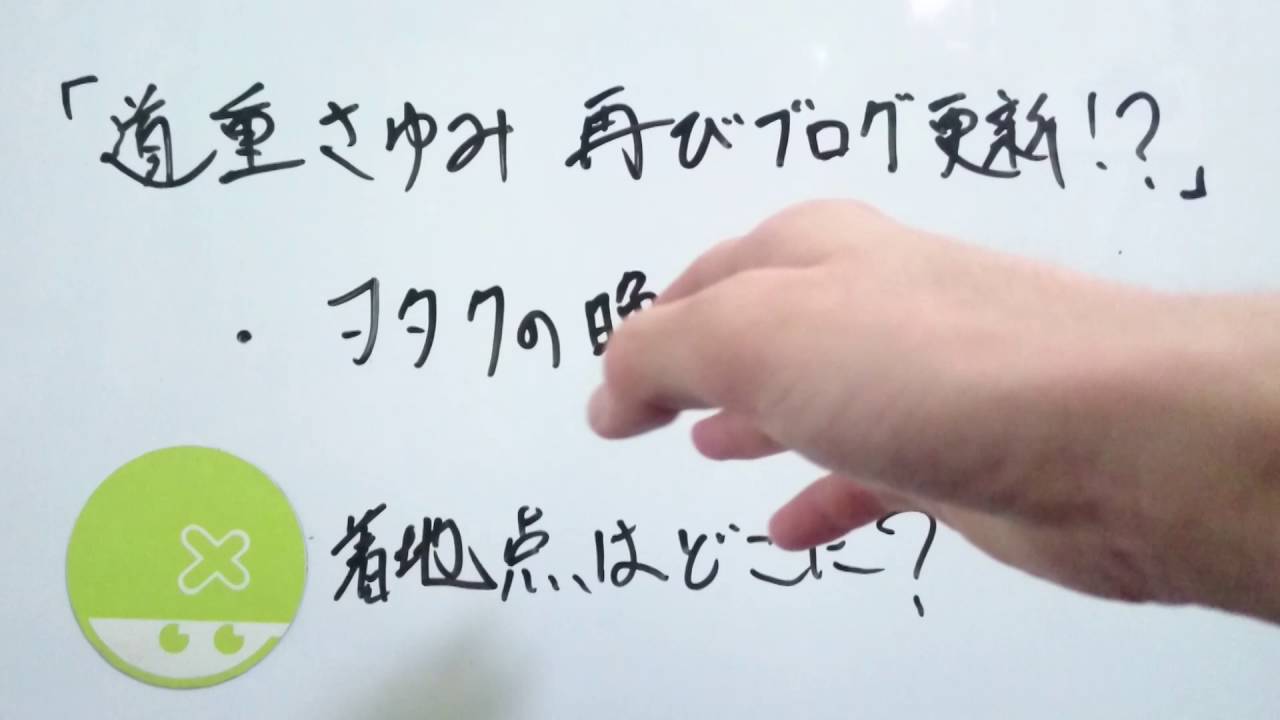 「道重さゆみ 再びブログ更新!?」
・ヲタクの
着地点はどこに?